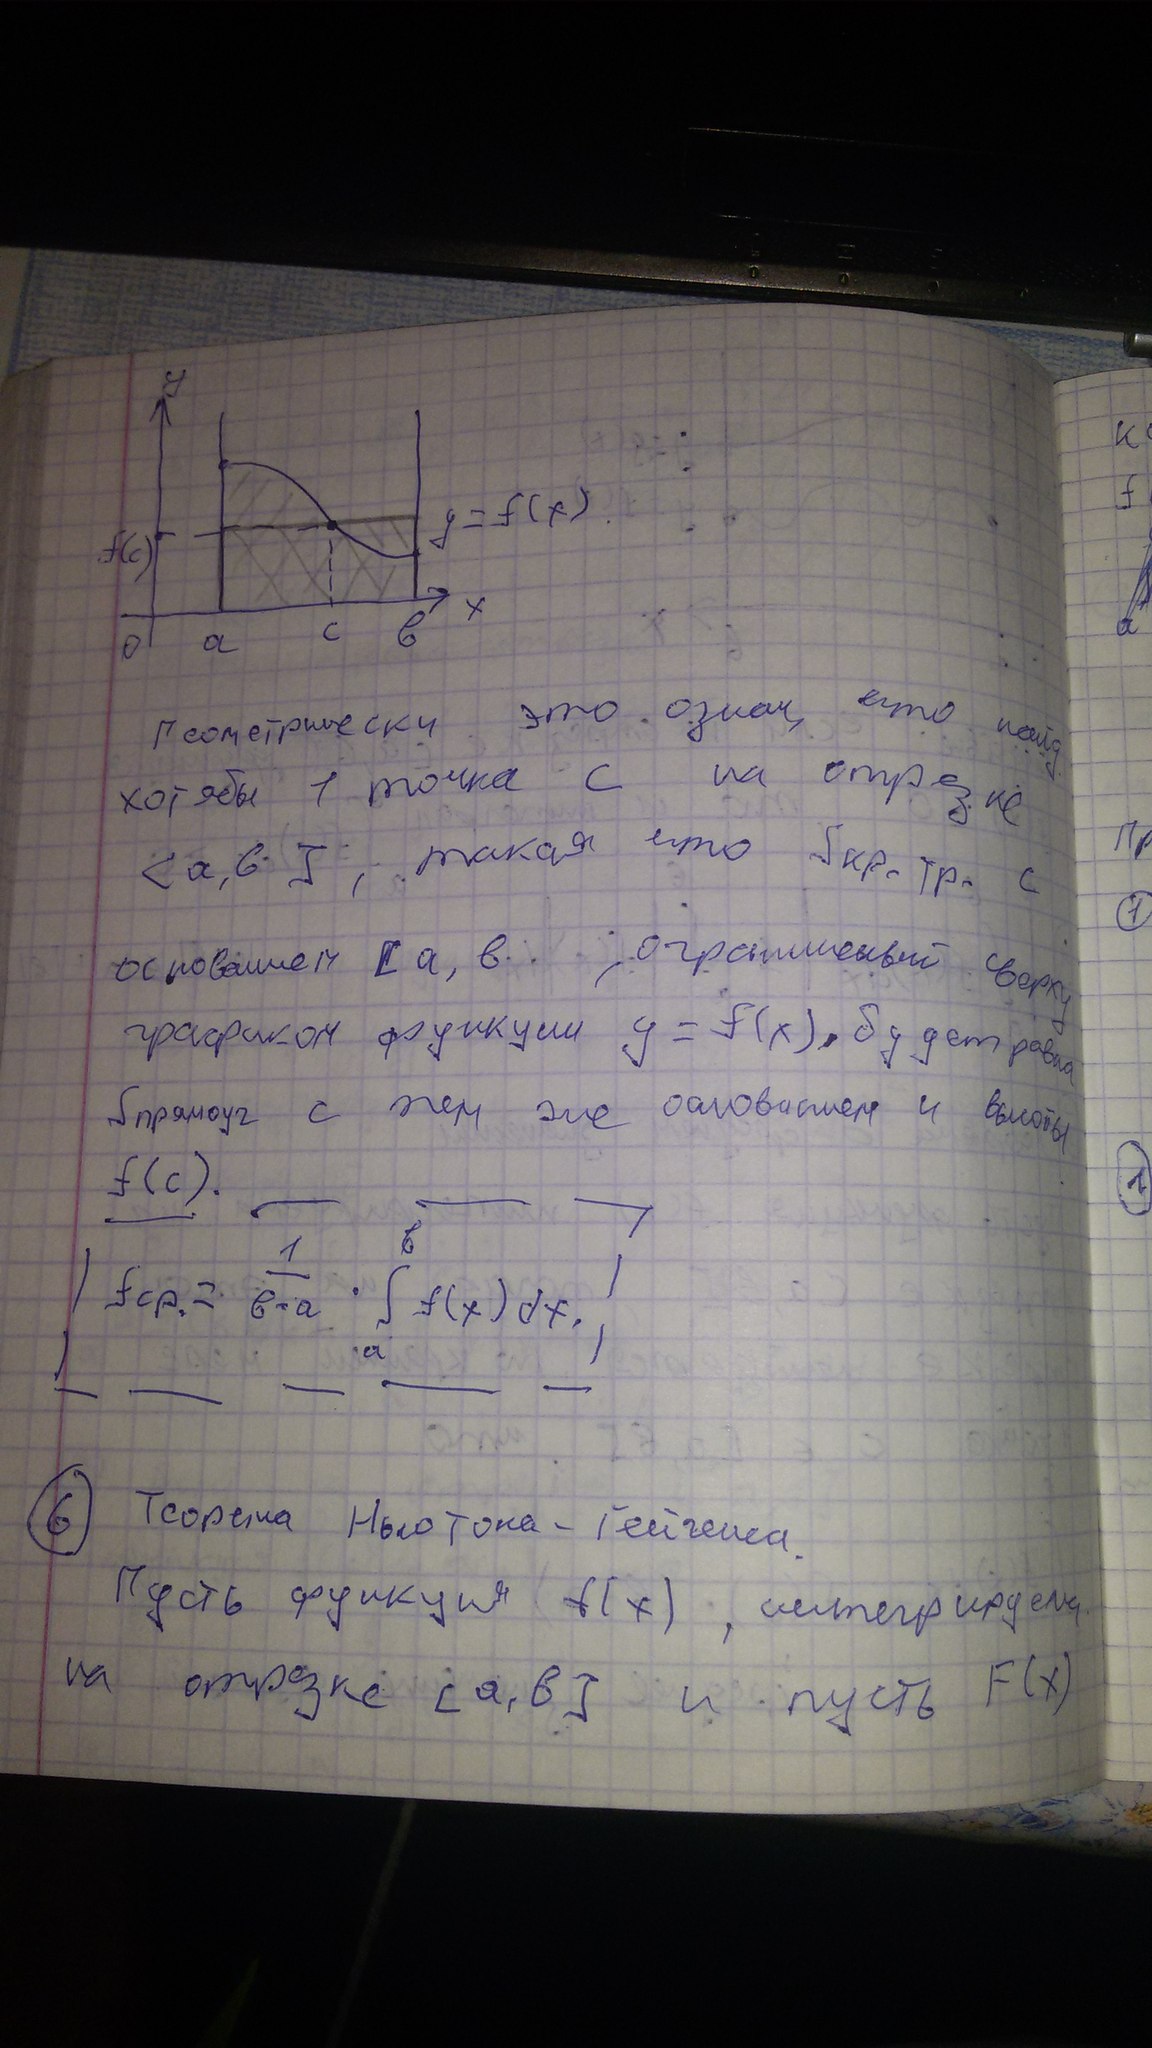 y
f(c)
y = f(x).
0 a c в x
Геометрически это означ, что найд.
хотябы 1 точка С на отрезке
[а, в], такая что Sкр. тр. с
основанием [а, в , ограниченный сверху
графиком функции y = f(x), будет равна
Sпрямоуг с тем же основанием и высоты
f(c).
fср. = 1/в-а · ∫ₐᵇ f(x) dx.
6 Теорема Ньютона -
Пусть функция f(x), интегрируема
на отрезке [а, в] и пусть F(x)
f
а
Пр
1
2